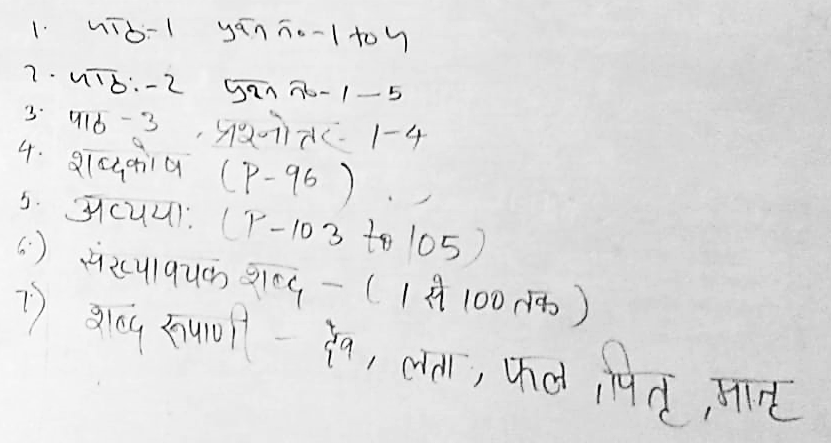 1. पाठ:-1 प्रश्न नं०-1 to 4
2. पाठ:-2 प्रश्न नं-1-5
3. पाठ-3, प्रश्नोत्तर- 1-4
4. शब्दकोष (P-96)
5. अव्यया: (P-103 to 105)
6.) संख्यावचक शब्द - (1 से 100 तक)
7.) शब्द रूपाणी - देव, लता, फल, पितृ, मातृ